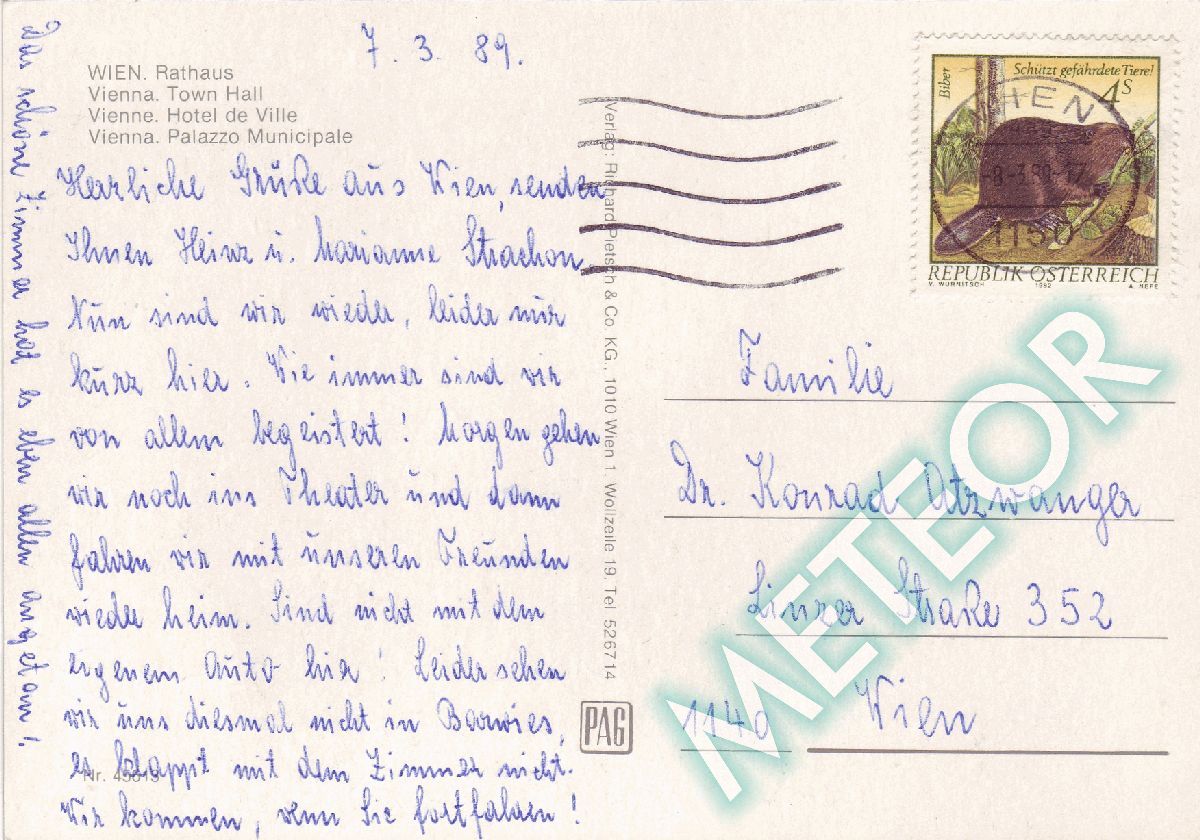 7. 3. 89.
WIEN. Rathaus
Vienna. Town Hall
Vienne. Hotel de Ville
Vienna. Palazzo Municipale
Herzliche Grüße aus Wien, senden
Ihnen Heinz u. Marianne Strachon.
Nun sind wir wieder, leider nur
kurz hier. Wie immer sind wir
von allem begeistert! Morgen gehen
wir noch ins Theater und dann
fahren wir mit unseren Freunden
wieder heim. Sind nicht mit dem
eigenem Auto hier! Leider sehen
wir uns diesmal nicht in Barwies,
es klappt mit dem Zimmer nicht.
Wir kommen, wenn Sie fortfahren!
Das schöne Zimmer hat es eben allen angetan!
Nr.
Verlag: Richard Pietsch & Co. KG., 1010 Wien 1, Wollzeile 19, Tel. 526714
PAG
Biber
Schützt gefährdete Tiere!
4 S
REPUBLIK ÖSTERREICH
1982
WIEN
1150
Familie
Dr. Konrad Atzwanger
Linzer Straße 352
1140 Wien
METEOR